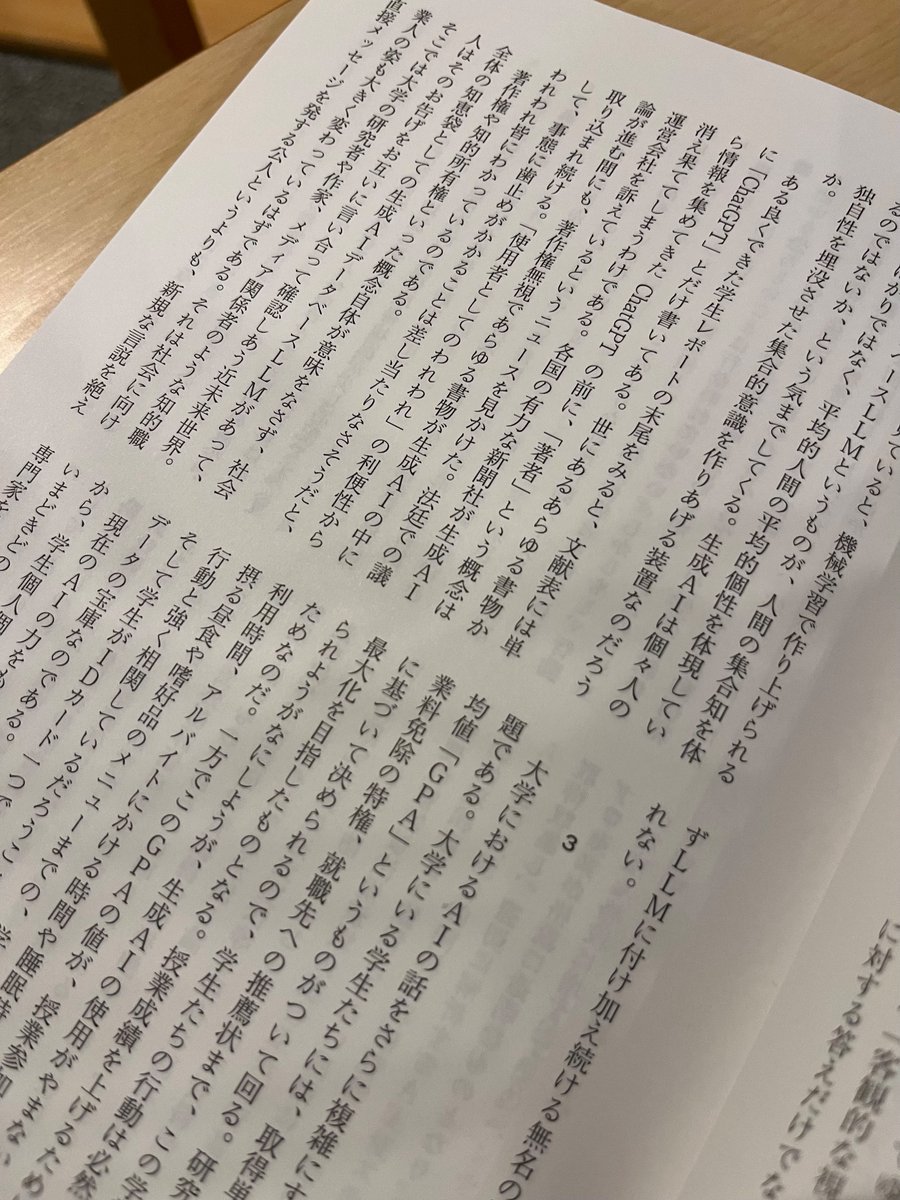 「客観的な
に対する答えだけでな
見ていると、機械学習で作り上げられる
ベースLLMというものが、人間の集合知を体
ばかりではなく、平均的人間の平均的個性を体現してい
るのではないか、という気までしてくる。生成AIは個々人の
独自性を埋没させた集合的意識を作りあげる装置なのだろう
か。
ある良くできた学生レポートの末尾をみると、文献表には単
に「ChatGPT」とだけ書いてある。世にあるあらゆる書物か
ら情報を集めてきたChatGPTの前に、「著者」という概念は
消え果ててしまうわけである。各国の有力な新聞社が生成AI
運営会社を訴えているというニュースを見かけた。法廷での議
論が進む間にも、著作権無視であらゆる書物が生成AIの中に
取り込まれ続ける。「使用者としてのわれわれ」の利便性から
して、事態に歯止めがかかることは差し当たりなさそうだと、
われわれ皆にわかっているのである。
著作権や知的所有権といった概念自体が意味をなさず、社会
全体の知恵袋としての生成AIデータベースLLMがあって、
人はそのお告げをお互いに言い合って確認しあう近未来世界。
そこでは大学の研究者や作家、メディア関係者のような知的職
業人の姿も大きく変わっているはずである。それは社会に向け
直接メッセージを発する公人というよりも、新規な言説を絶え
ずLLMに付け加え続ける無名の
れない。
3
大学におけるAIの話をさらに複雑にす
題である。大学にいる学生たちには、取得単
均値「GPA」というものがついて回る。研究
業料免除の特権、就職先への推薦状まで、この学
に基づいて決められるので、学生たちの行動は必然
最大化を目指したものとなる。授業成績を上げるため
られようがなにしようが、生成AIの使用がやまない
ためなのだ。一方でこのGPAの値が、授業参加
利用時間、アルバイトにかける時間や睡眠時
摂る昼食や嗜好品のメニューまでの、学
行動と強く相関しているだろうこ
そして学生がIDカード一つで
データの宝庫なのである。
現在のAIの力をも
から、学生個人個
いまどきどの
専門家を